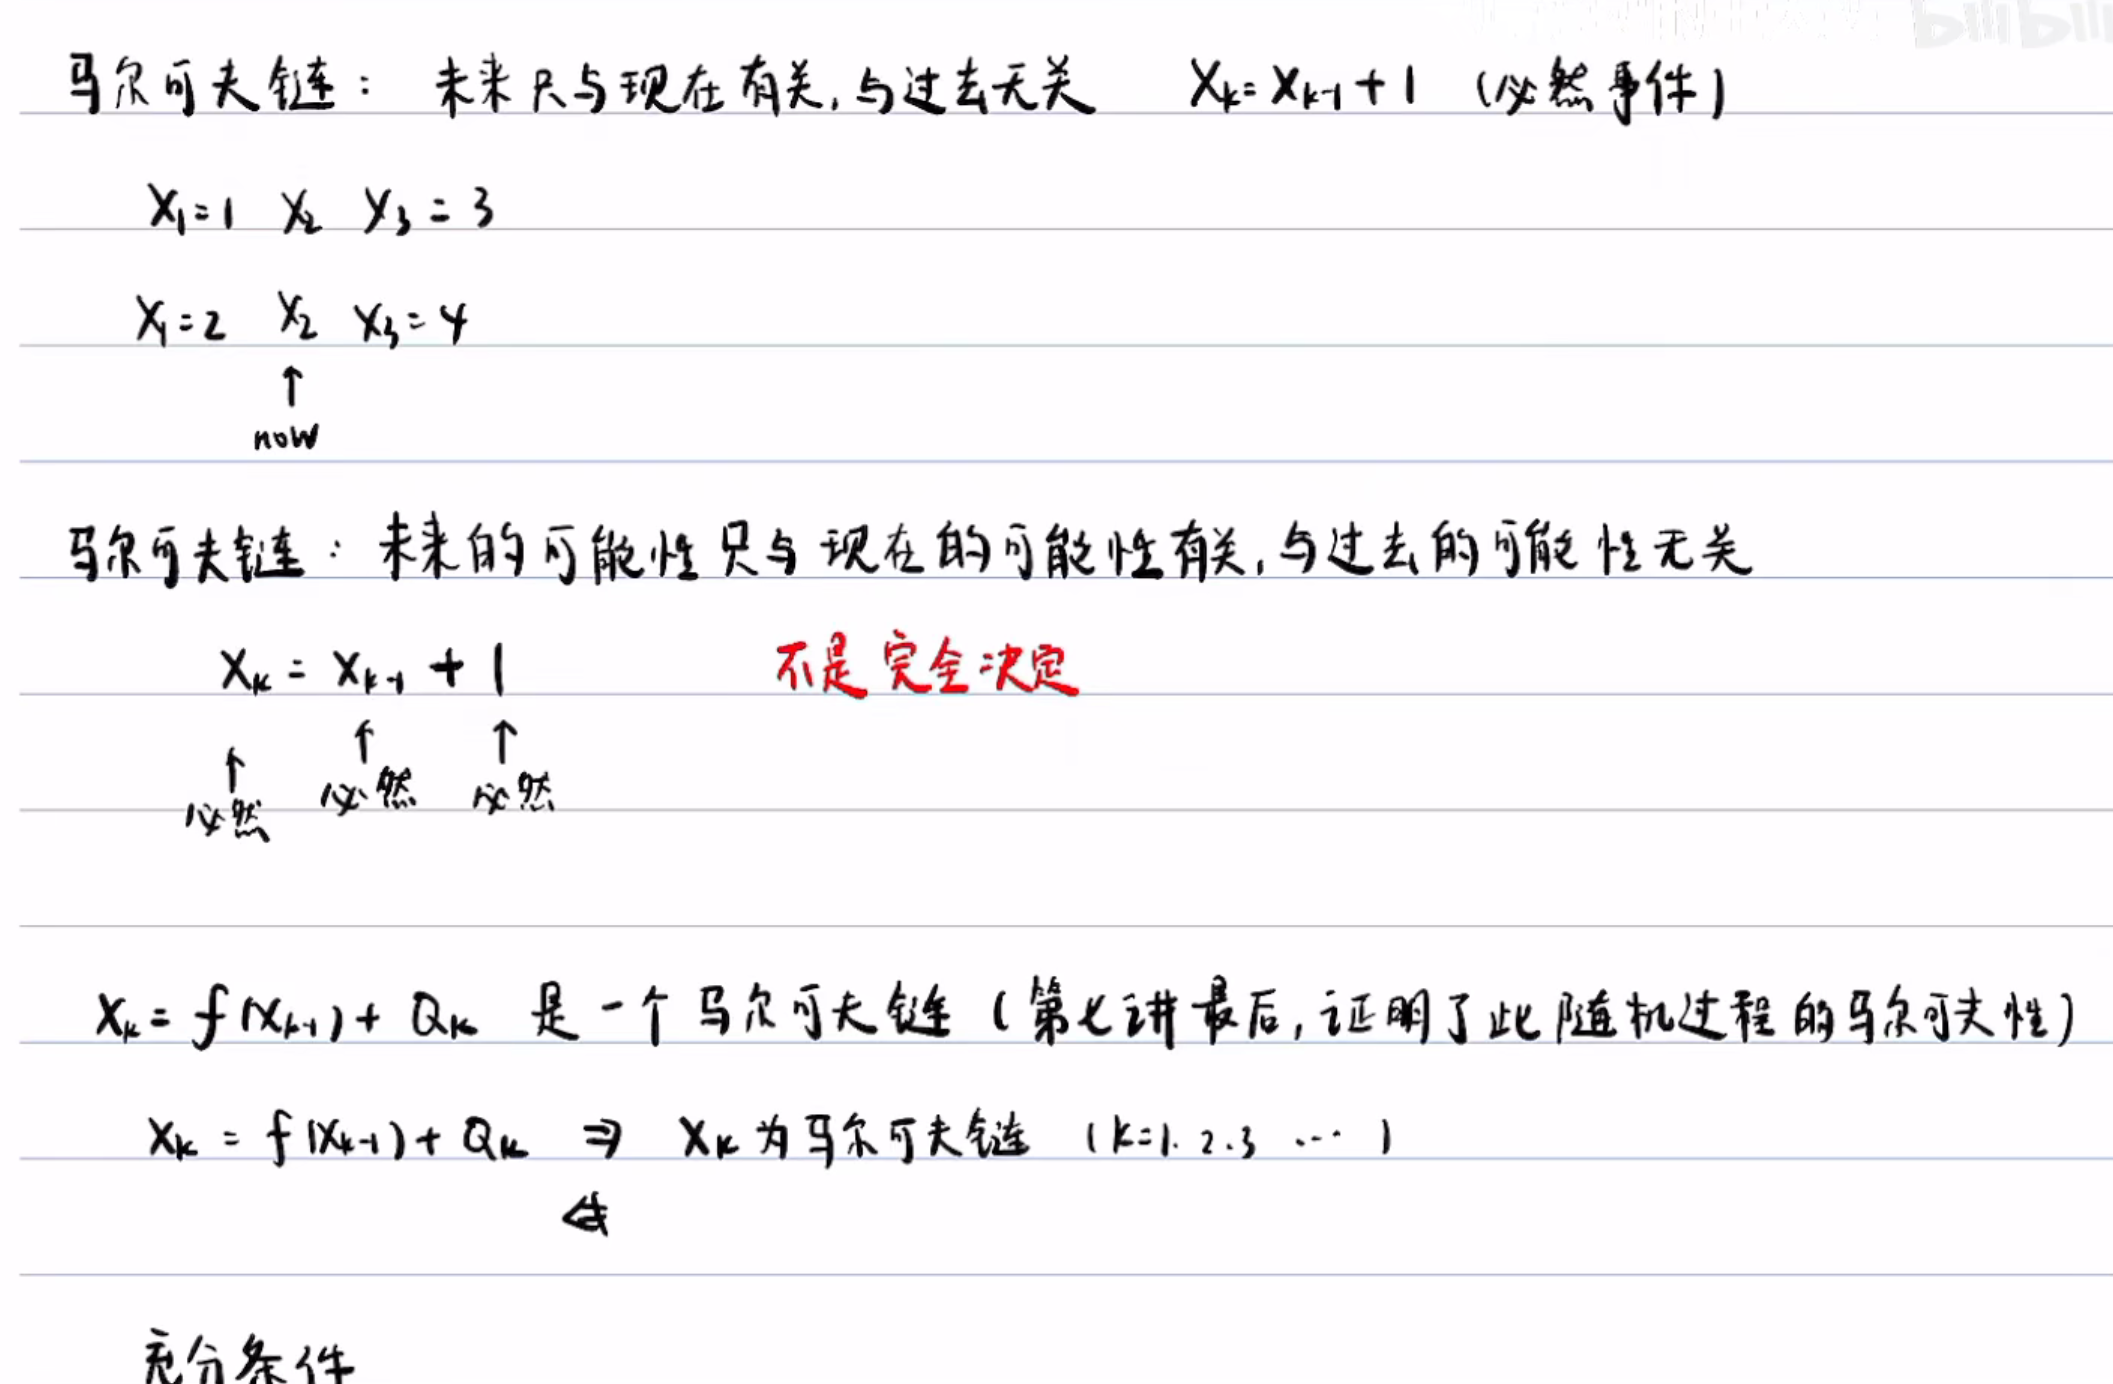 bilibili
马尔可夫链: 未来只与现在有关,与过去无关 Xk = Xk-1 + 1 (必然事件)
X1=1 X2 X3=3
X1=2 X2 X3=4
↑
now
马尔可夫链: 未来的可能性只与现在的可能性有关,与过去的可能性无关
Xk = Xk-1 + 1 不是完全决定
↑ ↑ ↑
必然 必然 必然
Xk = f(Xk-1) + Qk 是一个马尔可夫链 (第七讲最后,证明了此随机过程的马尔可夫性)
Xk = f(Xk-1) + Qk ⇒ Xk为马尔可夫链 (k=1.2.3 ⋯)
⇍
充分条件